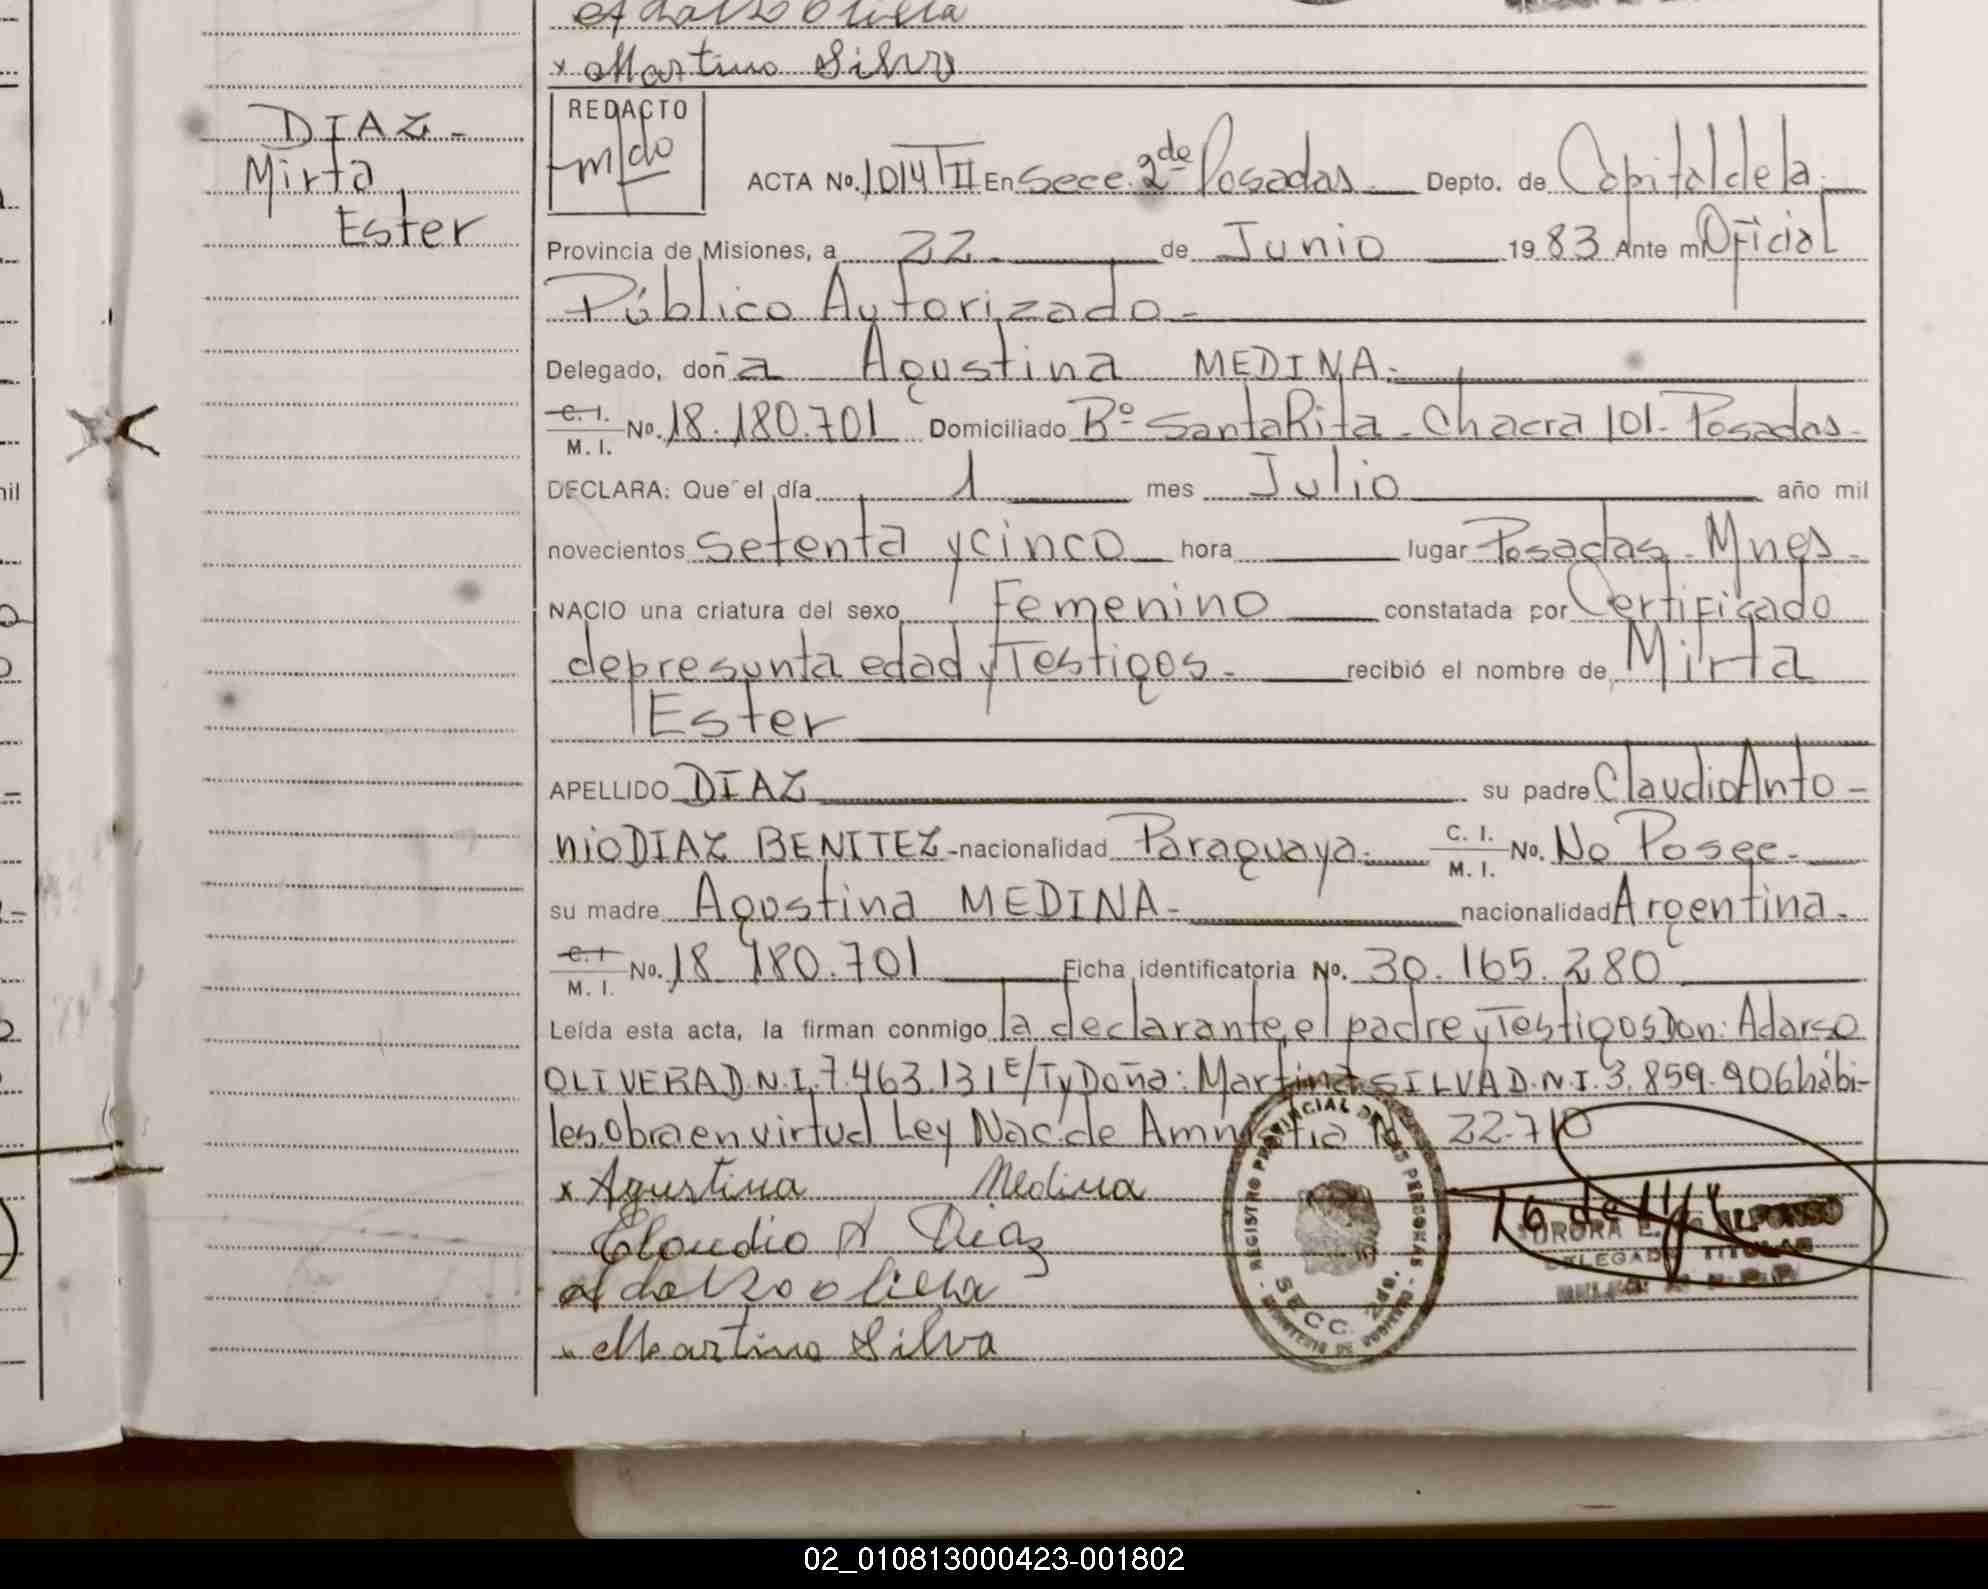 Martina Silva
DIAZ-
Mirta
Ester
REDACTO
ACTA No. 1014 TII En Secc. 2de Posadas Depto. de Capital de la
Provincia de Misiones, a 22 de Junio 1983 Ante mi Oficial
Público Autorizado-
Delegado, doña Agustina MEDINA-
C. I. M. I. No. 18.180.701 Domiciliado Bº Santa Rita - Chacra 101- Posadas-
DECLARA: Que el día 1 mes Julio año mil
novecientos setenta y cinco hora lugar Posadas - Mnes-
NACIO una criatura del sexo Femenino constatada por Certificado
de presunta edad y Testigos- recibió el nombre de Mirta
Ester
APELLIDO DIAZ su padre Claudio Anto-
nio DIAZ BENITEZ - nacionalidad Paraguaya- C. I. M. I. No. No Posee-
su madre Agustina MEDINA- nacionalidad Argentina-
C. I. M. I. No. 18 180.701 Ficha identificatoria No. 30.165.280
Leída esta acta, la firman conmigo la declarante, el padre y Testigos Don: Adarso
OLIVERA D.N.I. 7.463.131 E/T y Doña: Martina SILVA D.N.I. 3.859.906 hábi-
les. Obra en virtud Ley Nac. de Amnistia Nº 22.710
x Agustina Medina
Claudio A Diaz
Martina Silva
REGISTRO PROVINCIAL DE LAS PERSONAS
SECC. 2da.
AURORA E. ALFONSO
DELEGADO TITULAR
mil
02_010813000423-001802